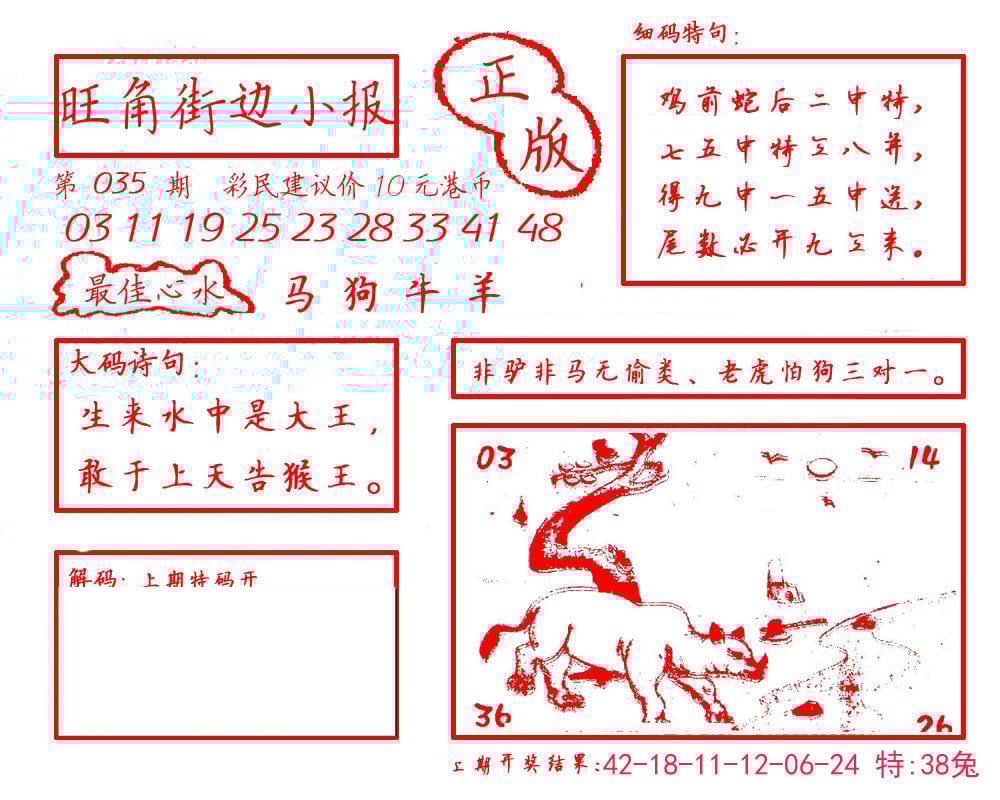 旺角街边小报
正版
第 035 期 彩民建议价 10 元港币
03 11 19 25 23 28 33 41 48
最佳心水 马 狗 牛 羊
细码特句：
鸡前蛇后二中特，
七五中特三八开，
得九中一五中送，
尾数必开九三来。
大码诗句：
生来水中是大王，
敢于上天告猴王。
非驴非马无偷类、老虎怕狗三对一。
03 14
36 26
解码· 上期特码开
上期开奖结果：42-18-11-12-06-24 特:38兔